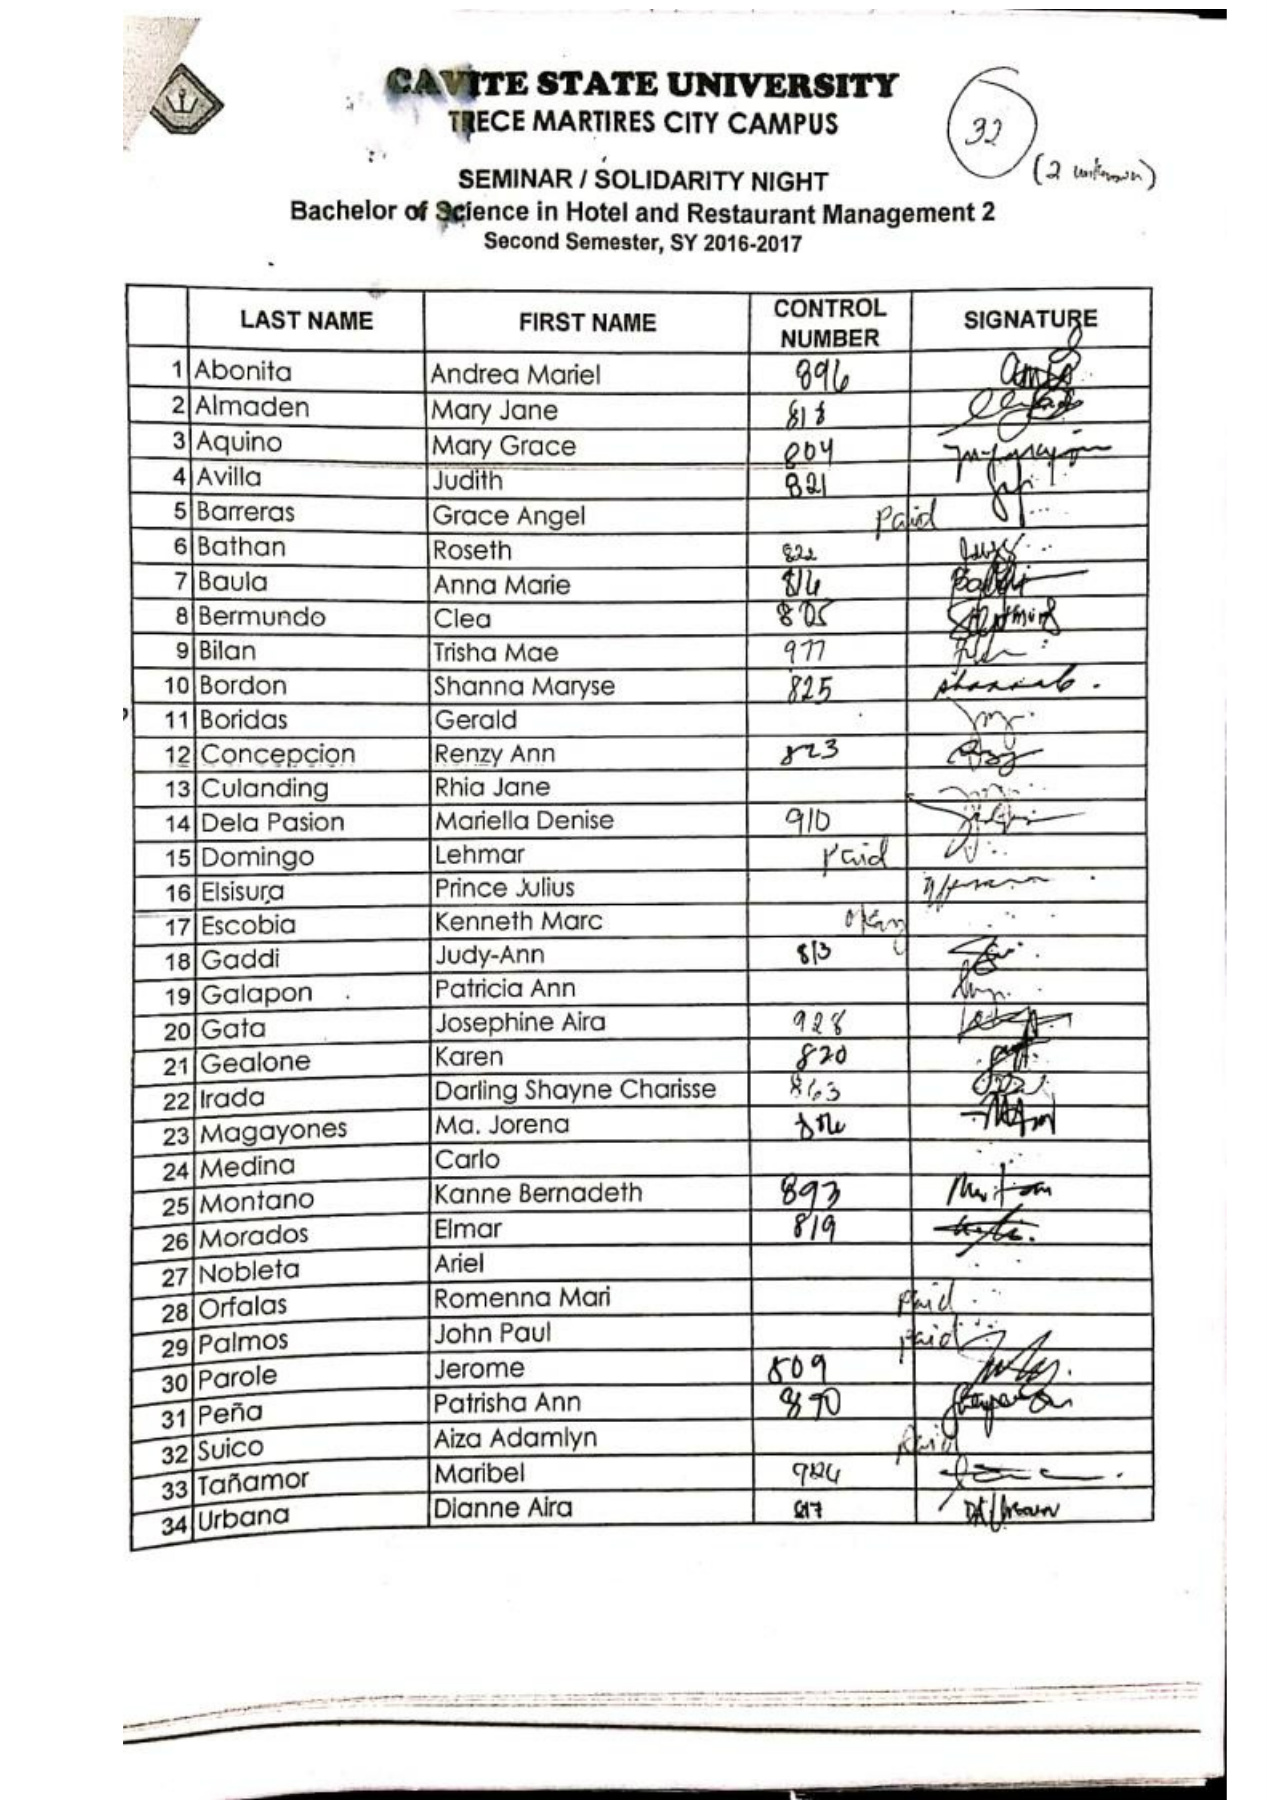 CAVITE STATE UNIVERSITY
TRECE MARTIRES CITY CAMPUS
32
(2 unknown)
SEMINAR / SOLIDARITY NIGHT
Bachelor of Science in Hotel and Restaurant Management 2
Second Semester, SY 2016-2017
LAST NAME FIRST NAME CONTROL NUMBER SIGNATURE
1 Abonita Andrea Mariel 896
2 Almaden Mary Jane 818
3 Aquino Mary Grace 804
4 Avilla Judith 821
5 Barreras Grace Angel Paid
6 Bathan Roseth 822
7 Baula Anna Marie 816
8 Bermundo Clea 805
9 Bilan Trisha Mae 977
10 Bordon Shanna Maryse 825
11 Boridas Gerald
12 Concepcion Renzy Ann 823
13 Culanding Rhia Jane
14 Dela Pasion Mariella Denise 910
15 Domingo Lehmar Paid
16 Elsisura Prince Julius
17 Escobia Kenneth Marc
18 Gaddi Judy-Ann 813
19 Galapon Patricia Ann
20 Gata Josephine Aira 928
21 Gealone Karen 820
22 Irada Darling Shayne Charisse 863
23 Magayones Ma. Jorena
24 Medina Carlo
25 Montano Kanne Bernadeth 893
26 Morados Elmar 819
27 Nobleta Ariel
28 Orfalas Romenna Mari Paid
29 Palmos John Paul paid
30 Parole Jerome 809
31 Peña Patrisha Ann 870
32 Suico Aiza Adamlyn Paid
33 Tañamor Maribel
34 Urbana Dianne Aira 817